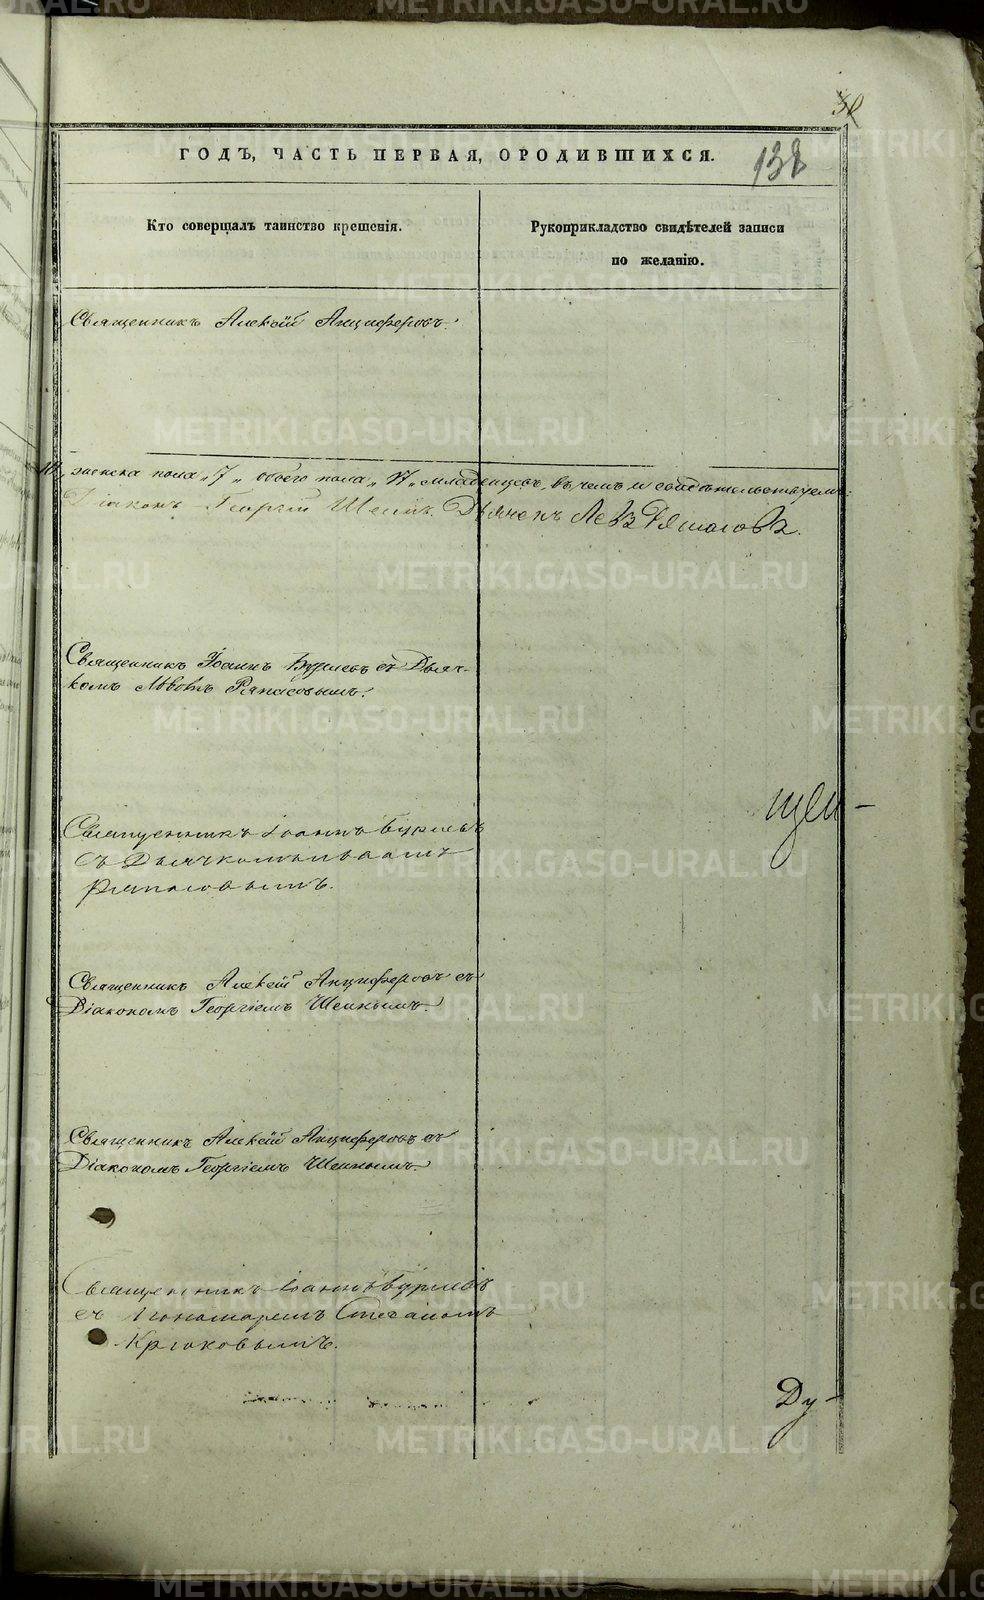 ГОДЪ, ЧАСТЬ ПЕРВАЯ, О РОДИВШИХСЯ.
138
Кто совершалъ таинство крещенія.
Рукоприкладство свидѣтелей записи
по желанію.
Священникъ Алексій Анциферовъ.
женска пола „7„ обоего пола „17„ младенцевъ, въ чемъ и свидѣтельствуемъ:
Діаконъ Георгій Дьячекъ
Священникъ Іоаннъ Бурлевъ съ Дьяч-
комъ Львомъ Ряпасовымъ.
Священникъ Іоаннъ Бурлевъ
съ Дьячкомъ Львомъ
Ряпасовымъ.
Священникъ Алексій Анциферовъ съ
Діакономъ Георгіемъ Шеинымъ.
Священникъ Алексій Анциферовъ съ
Діакономъ Георгіемъ Шеинымъ.
Священникъ Іоаннъ Бурлевъ
съ Пономаремъ Стефаномъ
Крюковымъ.
Ду-
METRIKI.GASO-URAL.RU